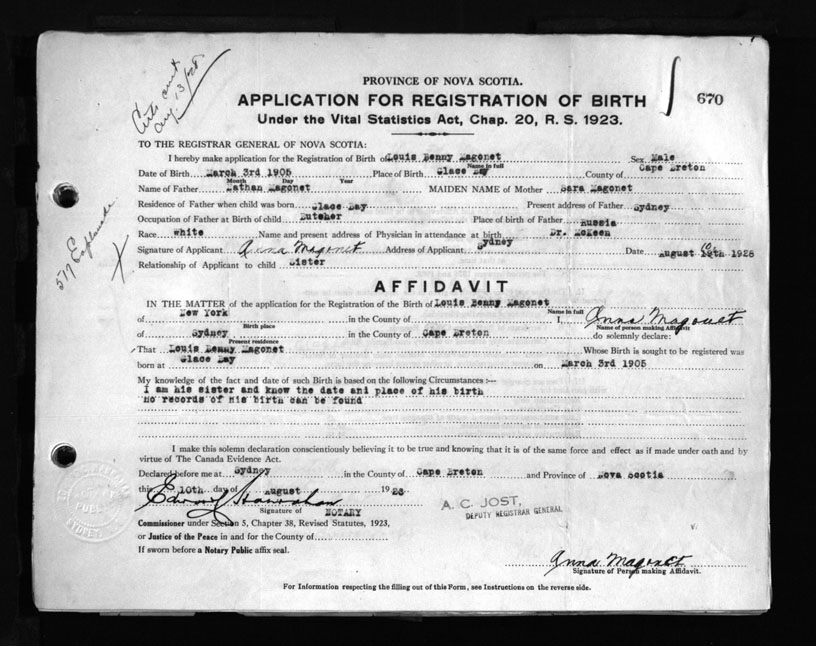 Certs sent
Aug. 13/28
PROVINCE OF NOVA SCOTIA.
APPLICATION FOR REGISTRATION OF BIRTH
670
Under the Vital Statistics Act, Chap. 20, R. S. 1923.
TO THE REGISTRAR GENERAL OF NOVA SCOTIA:
I hereby make application for the Registration of Birth of Louis Benny Magonet Sex Male
Name in full
Date of Birth March 3rd 1905 Place of Birth Glace Bay County of Cape Breton
Month Day Year
Name of Father Nathan Magonet MAIDEN NAME of Mother Sara Magonet
Residence of Father when child was born Glace Bay Present address of Father Sydney
Occupation of Father at Birth of child Butcher Place of birth of Father Russia
Race white Name and present address of Physician in attendance at birth Dr. McKeen
Signature of Applicant Anna Magonet Address of Applicant Sydney Date August 10th 1928
Relationship of Applicant to child Sister
577 Esplanade
X
AFFIDAVIT
IN THE MATTER of the application for the Registration of the Birth of Louis Benny Magonet
Name in full
of New York in the County of I, Anna Magonet
Birth place Name of person making Affidavit
of Sydney in the County of Cape Breton do solemnly declare:
Present residence
That Louis Benny Magonet Whose Birth is sought to be registered was
born at Glace Bay on March 3rd 1905
My knowledge of the fact and date of such Birth is based on the following Circumstances :—
I am his sister and know the date and place of his birth
no records of his birth can be found
I make this solemn declaration conscientiously believing it to be true and knowing that it is of the same force and effect as if made under oath and by
virtue of The Canada Evidence Act.
Declared before me at Sydney in the County of Cape Breton and Province of Nova Scotia
this 10th day of August 1928
Signature of NOTARY
A. C. JOST,
DEPUTY REGISTRAR GENERAL
Commissioner under Section 5, Chapter 38, Revised Statutes, 1923,
or Justice of the Peace in and for the County of
If sworn before a Notary Public affix seal.
Anna Magonet
Signature of Person making Affidavit.
For Information respecting the filling out of this Form, see Instructions on the reverse side.